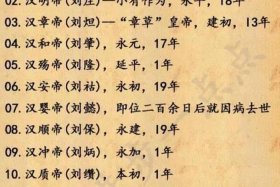 02. 汉明帝(刘庄)—小有作为, 永平, 18年
03. 汉章帝(刘炟)—“章草”皇帝, 建初, 13年
04. 汉和帝(刘肇), 永元, 17年
05. 汉殇帝(刘隆), 延平, 1年
06. 汉安帝(刘祜), 永初, 19年
07. 汉婴帝(刘懿), 即位二百余日后就因病去世
08. 汉顺帝(刘保), 永建, 19年
09. 汉冲帝(刘炳), 永加, 1年
10. 汉质帝(刘缵), 本初, 1年